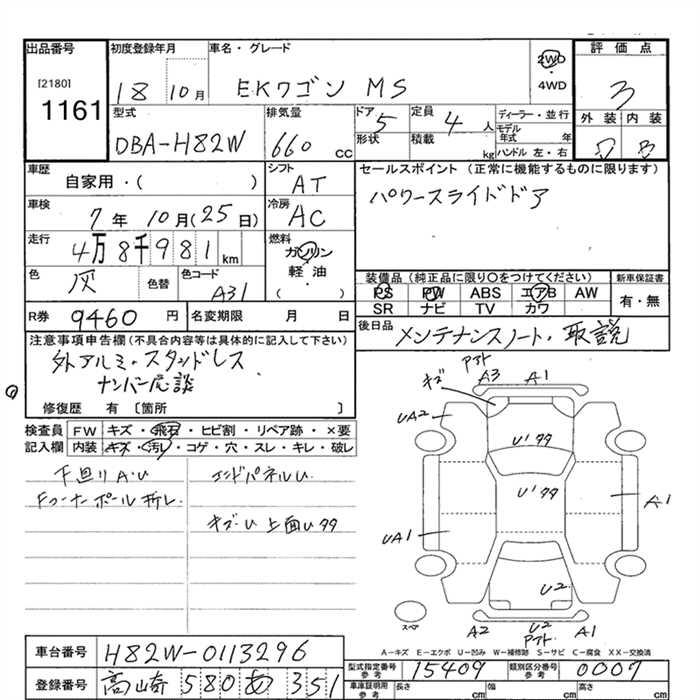 出品番号 初度登録年月 車名・グレード 評価点
[2180]
1161
18 10月 EKワゴン MS 2WD・4WD 3
型式 排気量 ドア 定員 ディーラー・並行 外装 内装
DBA-H82W 660cc 5 4人 モデル年式 年
形状 積載 kg ハンドル 左・右
車歴 シフト セールスポイント (正常に機能するものに限ります)
自家用・( ) AT パワースライドドア
車検 冷房
7年10月(25日) AC
走行 燃料
4万8千981km ガソリン
軽油
( )
色 色替 色コード 装備品(純正品に限り〇をつけてください) 新車保証書
灰 A31 PS PW ABS エアB AW 有・無
SR ナビ TV カワ
R券 9460円 名変期限 月 日 後日品 メンテナンスノート・取説
注意事項申告欄(不具合内容等は具体的に記入して下さい)
外アルミ・スタッドレス
ナンバー応談
修復歴 有〔箇所 〕
検査員 FW キズ・飛石・ヒビ割・リペア跡・×要
記入欄 内装 キズ・汚れ・コゲ・穴・スレ・キレ・破レ
下回りA・U エンドパネルU
Fコーナーポール折レ
キズU 上面U
アト
キズ A3 A1
UA2
U'
U'
UA1 A1
U2
スペア A2 U2 アト A1
A-キズ E-エクボ U-凹み W-補修跡 S-サビ C-腐食 XX-交換済
車台番号 H82W-0113296
型式指定番号 参考 15409 類別区分番号 参考 0007
登録番号 高崎 580 あ 351
車庫証明用 参考 長さ cm 幅 cm 高さ cm